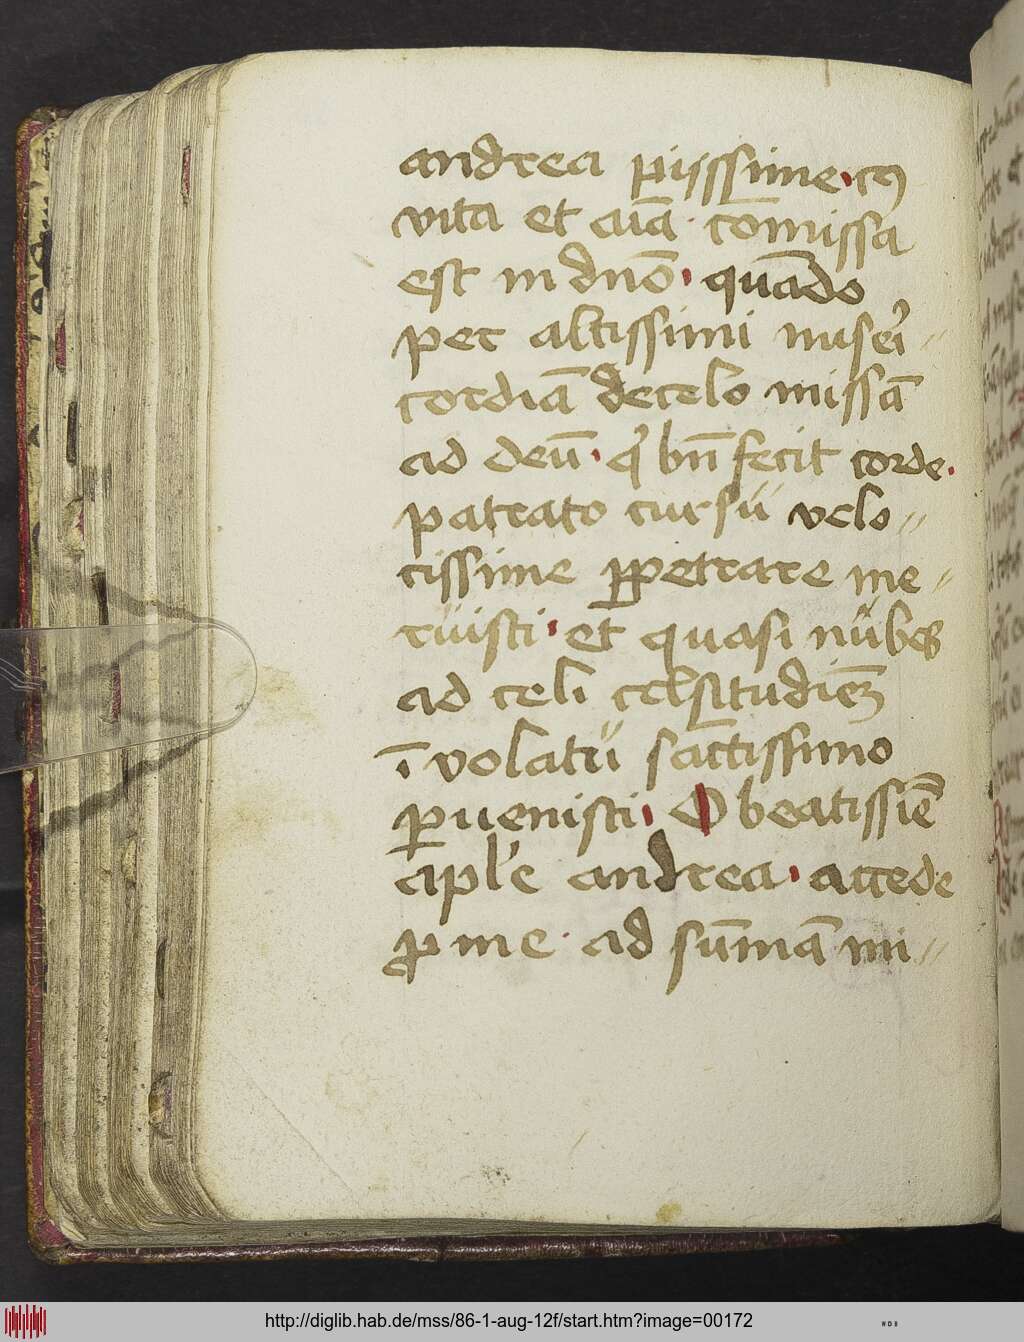 andrea piissime · cuꝰ
vita et aīa cōmissa
est in dn̄o · quādo
per altissimi miseri
cordiā de celo missā
ad deū · qͥ bn̄ fecit corde ·
patrato cursu velo
cissime ꝑpetrare me
ruisti · et quasi nubes
ad celi celsitudinē
ī volatu sāctissimo
ꝑuenisti · O beatissīe
apl'e andrea · accede
ꝓ me · ad sūmā mi
http://diglib.hab.de/mss/86-1-aug-12f/start.htm?image=00172